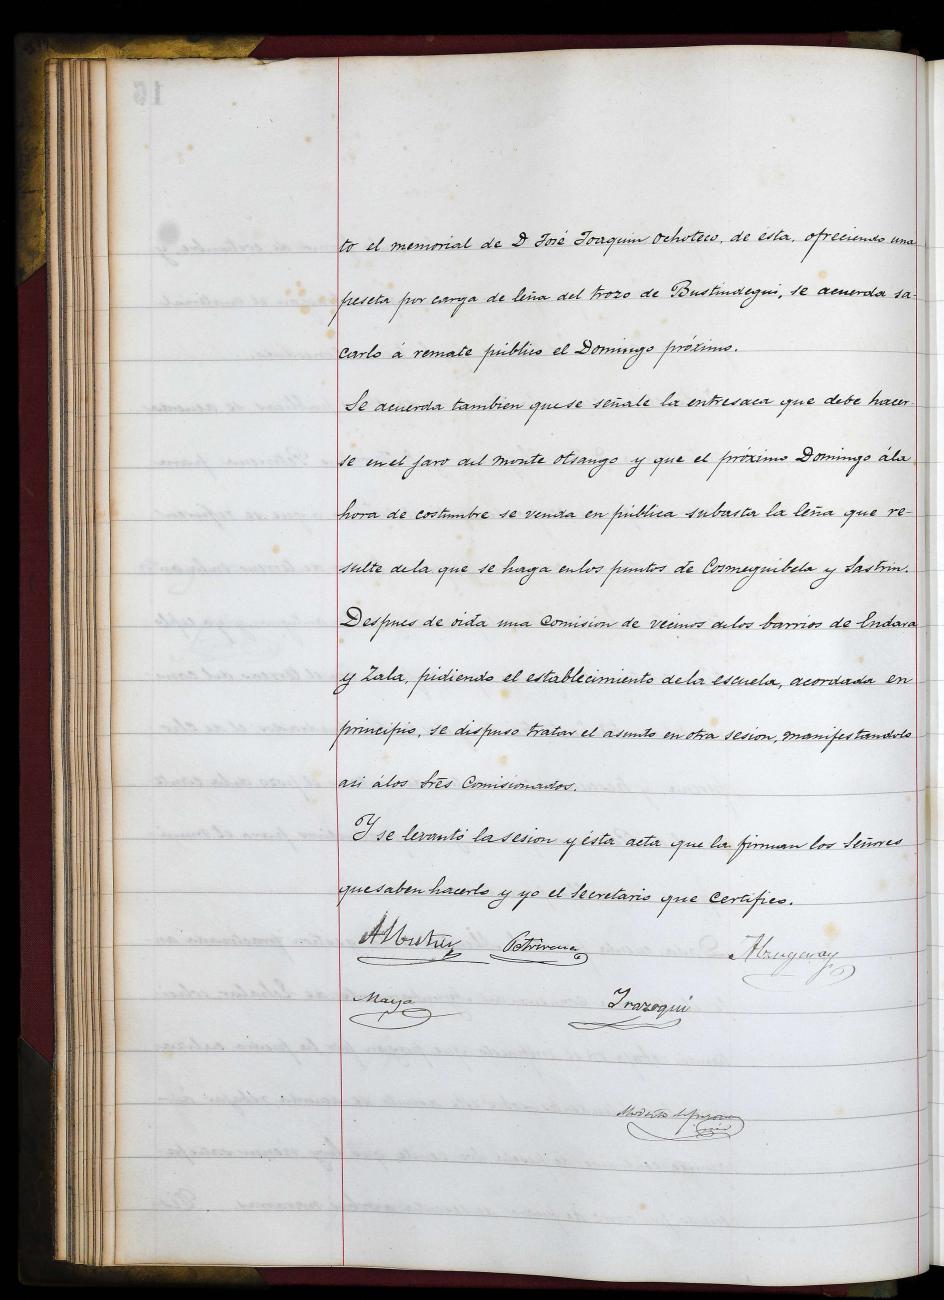 to el memorial de D José Joaquin Ochoteco, de ésta, ofreciendo una
peseta por carga de leña del trozo de Bustindegui, se acuerda sa-
carlo á remate público el Domingo próximo.
Se acuerda tambien que se señale la entresaca que debe hacer-
se en el jaro del monte Otsango y que el próximo Domingo á la
hora de costumbre se venda en pública subasta la leña que re-
sulte de la que se haga en los puntos de Cosmeguibela y Sastrin.
Despues de oida una Comision de vecinos de los barrios de Endara
y Zala, pidiendo el establecimiento de la escuela, acordada en
principio, se dispuso tratar el asunto en otra sesion, manifestandolo
asi á los Sres Comisionados.
Y se levantó la sesion y ésta acta que la firman los Señores
que saben hacerlo y yo el Secretario que certifico.
Maya Irazoqui
Modesto